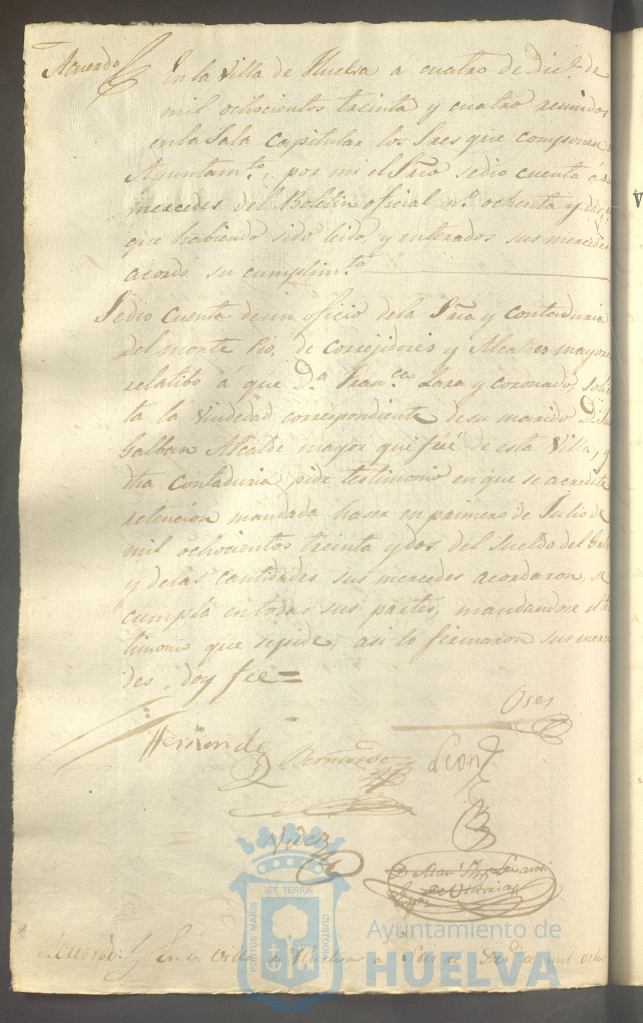 Acuerdo En la Villa de Huelva á cuatro de Dic.e de
mil ochocientos treinta y cuatro reunidos
en la Sala capitular los Sres que componen
Ayuntam.to, por mi el Srio sedio cuenta á su
mercedes del Boletin oficial n.o ochenta y
que habiendo sido leido, y enterados sus mercedes
acordó su cumplim.to
Sedio cuenta de un oficio dela Sria y contaduria
del monte Pio, de correjidores y Alcaldes mayores
relatibo á que D.a Fran.ca Lara y coronado, soli
ta la viudedad correspondiente de su marido D.
Galban Alcalde mayor que fué de esta Villa, y
dha contaduria pide testimonio en que se acredite
retencion mandada haser en primero de Julio de
mil ochocientos treinta y dos del sueldo del
y delas cantidades, sus mercedes acordaron, se
cumpla en todas sus partes, mandandose el tes
timonio que sepide, asi lo firmaron sus merce
des, doy fee=
Oses
Hernande
Bermudez
Leon
ET TERRAE
PORTUS MARIS
CUSTODIA
Ayuntamiento de
HUELVA
Acuerdo En la Villa de Huelva a de Dic.e de mil ocho